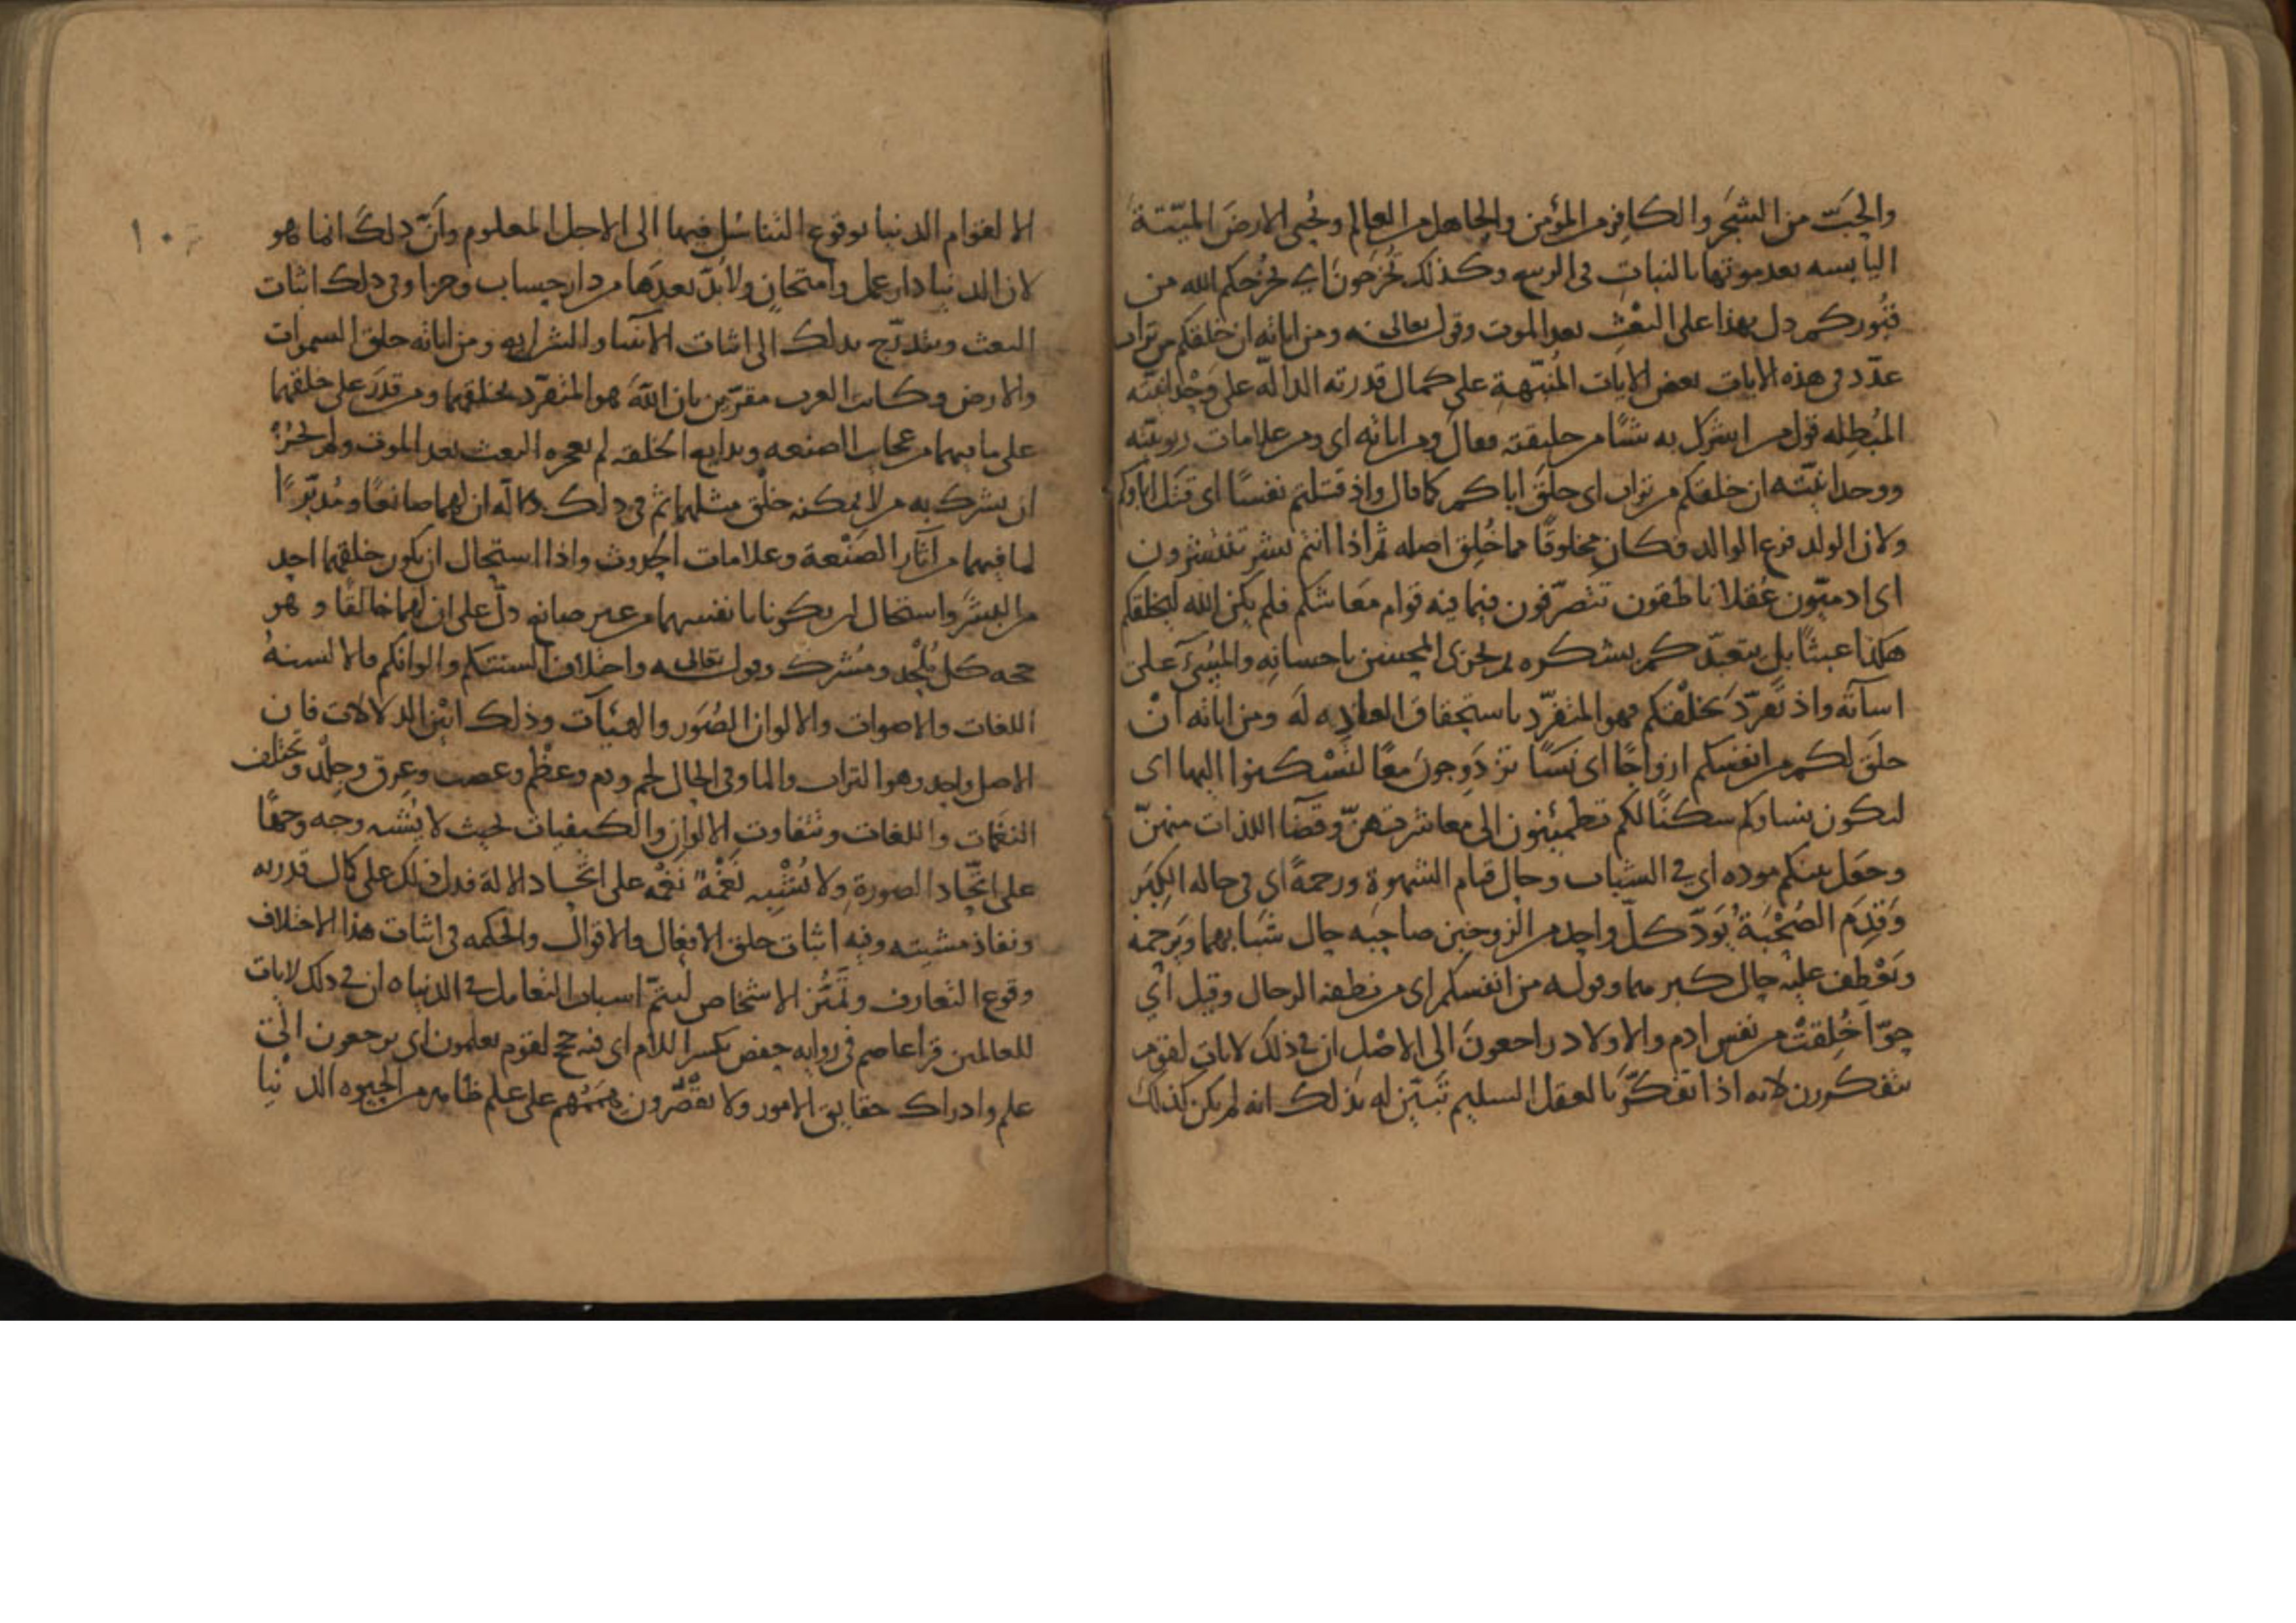 والحبّ من الشجر والكافر من المؤمن والجاهل من العالم ونُحيي الارضَ الميّتةَ
اليابسه بعد موتها بالنباتِ في الربيع وكذلك تُخرَجونَ اي يُخرجُكم الله من
قُبُوركم دل بهذا على البَعْثِ بعد الموت وقوله تعالى ومن اياته ان خلقكم من تراب
عدّد في هذه الايات بعض الايات المُنبّهةِ على كمال قدرته الدالّة على وَحْدانيّته
المُبْطِله قول من اشرك به شيًا من خليقته فقال ومن اياته اى ومن علامات ربوبيّته
ووحدانيّته ان خلقكم من تراب اى خلَقَ اباكم كما قال واذ قتلتم نفسًا اى قتَلَ اباوكم
ولان الولد فرع الوالد فكان مخلوقًا مما خُلِق اصله ثم اذا انتم بشر تنتشرون
اى ادميّون عُقلا ناطقون تتصرّفون فيما فيه قوام مَعَاشكم فلم يكن الله ليخلقكم
هكذا عبثًا بل يتعبّدكم بشكره ثم يجزى المحسن باحسانِهِ والمُسِئَ على
اسآته واذ تفرّدَ بخلْقكم فهو المتفرّد باستحقاق العبادِه لَه ومن اياته انْ
خلَقَ لكم من انفسكم ازواجًا اى نسَآ تزْدَوِجونَ معًا لتَسْكنوا اليها اى
لتكون نساوكم سكنًا لكم تطمئِنون الى مَعَاشرتهنّ وقضآ اللذات منهنّ
وجعَل بينكم موده اي في الشباب وحال قيام الشهوة ورحمةً اي في حاله الكِبَر
وَقِدَم الصُحْبَةُ يُوَدّ كلّ واحد من الزوجين صاحبَه حال شَبَابهما وَيَرحمه
ويَعْطِف عليه حال كبر هما وقوله من انفسكم اى من نطفه الرجال وقيل اي
حوّا خُلِقتْ من نفس ادم والاولاد راجعونَ الى الاصْلِ ان في ذلك لاياتٍ لقوم
يتفكرون لانه اذا تفكّرَ بالعقل السليم تَبَيّن له بذلك انه لم يكن كذلك
الا لقوام الدنيا بوقوع التناسُل فيها الى الاجل المعلوم وأنّ ذلكَ انما هو
لان الدنيا دار عمل وامتحانٍ ولابدّ بعدَها من دار حساب وجزا وفي ذلك اثبات
البعث ويتدرّج بذلك الى اثبات الانبيا والشرايع ومن اياته خلق السموات
والارض وكانت العرب مقرّين بان اللّهَ هو المتفرّد بخلقهما ومن قدَرَ على خلقهما
على ما فيهما من عجايب الصنعه وبدايع الخلقه لم يعجزه البعث بعد الموت ولم يجُزْ
ان يشرك به من لا يمكنه خلْق مثلهما ثم في ذلك دلاله ان لهما صانعًا ومُدبّرًا
لما فيهما من آثار الصَنْعة وعلامات الحدوث واذا استحال ان يكون خلقهما احد
من البشَر واستحال ان يكونا بانفسهما من غير صانع دلّ على ان لهما خالقًا و هو
حجه كل مُلْحِد ومُشرك وقوله تعالى واختلاف السنتكم والوانكم فالالسنهُ
اللغات والاصوات والالوان الصُوَر والهيئآت وذلك ابْين الدلالات فان
الاصل واحد وهو التراب والما وفي الحال لحم ودم وعظْم وعصب وعِرق وجلْد وتختلف
النغَمات واللغات وتتفاوت الالوان والكيفيات بحيث لا يُشبه وجه وجهًا
على اتّحاد الصورةِ ولا تُشْبِه نَغْمَةٌ نغْمَه على اتّحاد الالة فدل ذلك على كمال قدرته
ونفاذ مشيته وفيه اثبات خلق الافعال والاقوال والحكمه في اثبات هذا الاختلاف
وقوع التعارف وتَميُّز الاشخاص ليتمّ اسباب التعامل في الدنيا ه ان في ذلك لايات
للعالمين قرأ عاصم في روايه حفص بكسر اللام اى فيه حجج لقوم يعلمون اي يرجعون الى
علم وادراك حقايق الامور ولا يقصّرون هِمَمَهُم على علم ظاهر من الحيوه الدنْيا